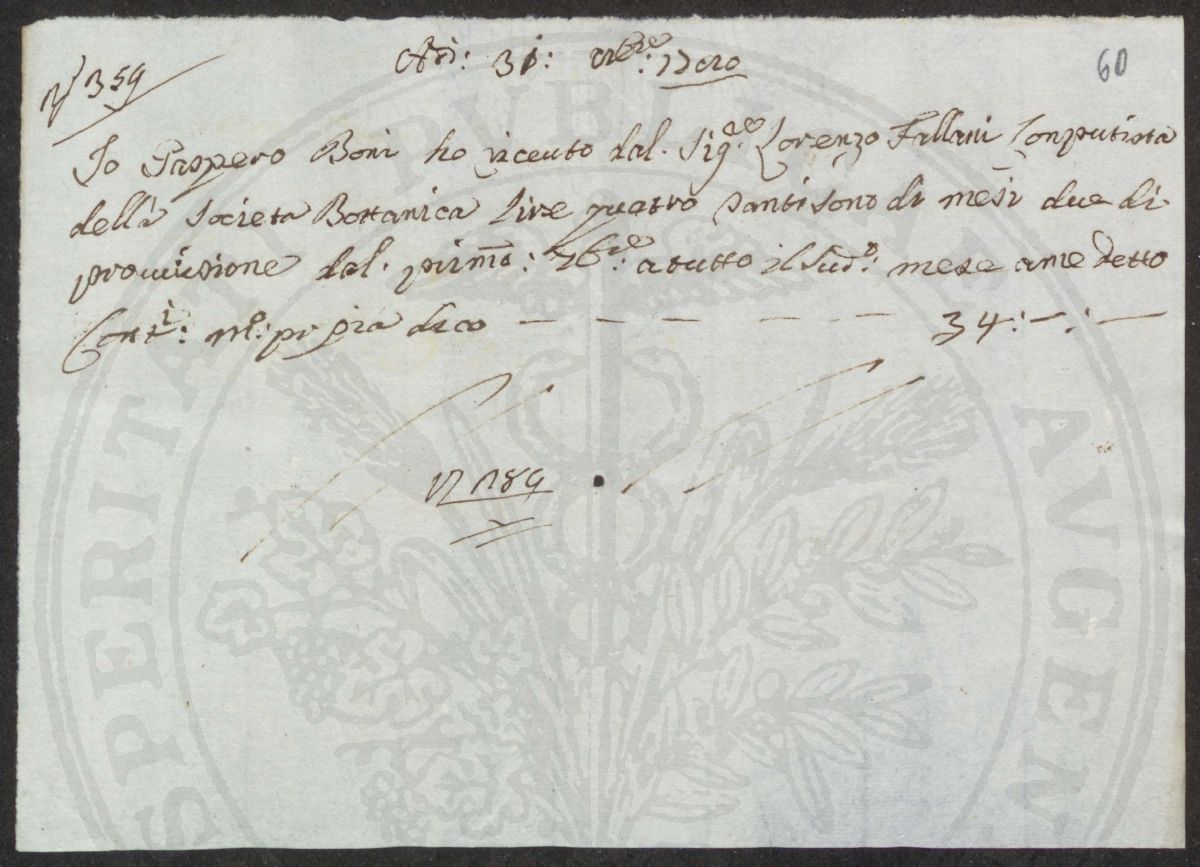 N 359
Adì: 31: 8bre: 
60
Io Gaspero Boni ho riceuto dal. Sig.re Lorenzo Fallani Conputista
della Societa Bottanica Lire quatro Santi sono di mesi due di
provvisione dal. pirmo: 7bre: a tutto il Sud.o: mese a me detto
Cont.i: M.o: pr pia dico — — — — — — 34:—:—
N 189
PERITATI PVBLICAE AVGEN